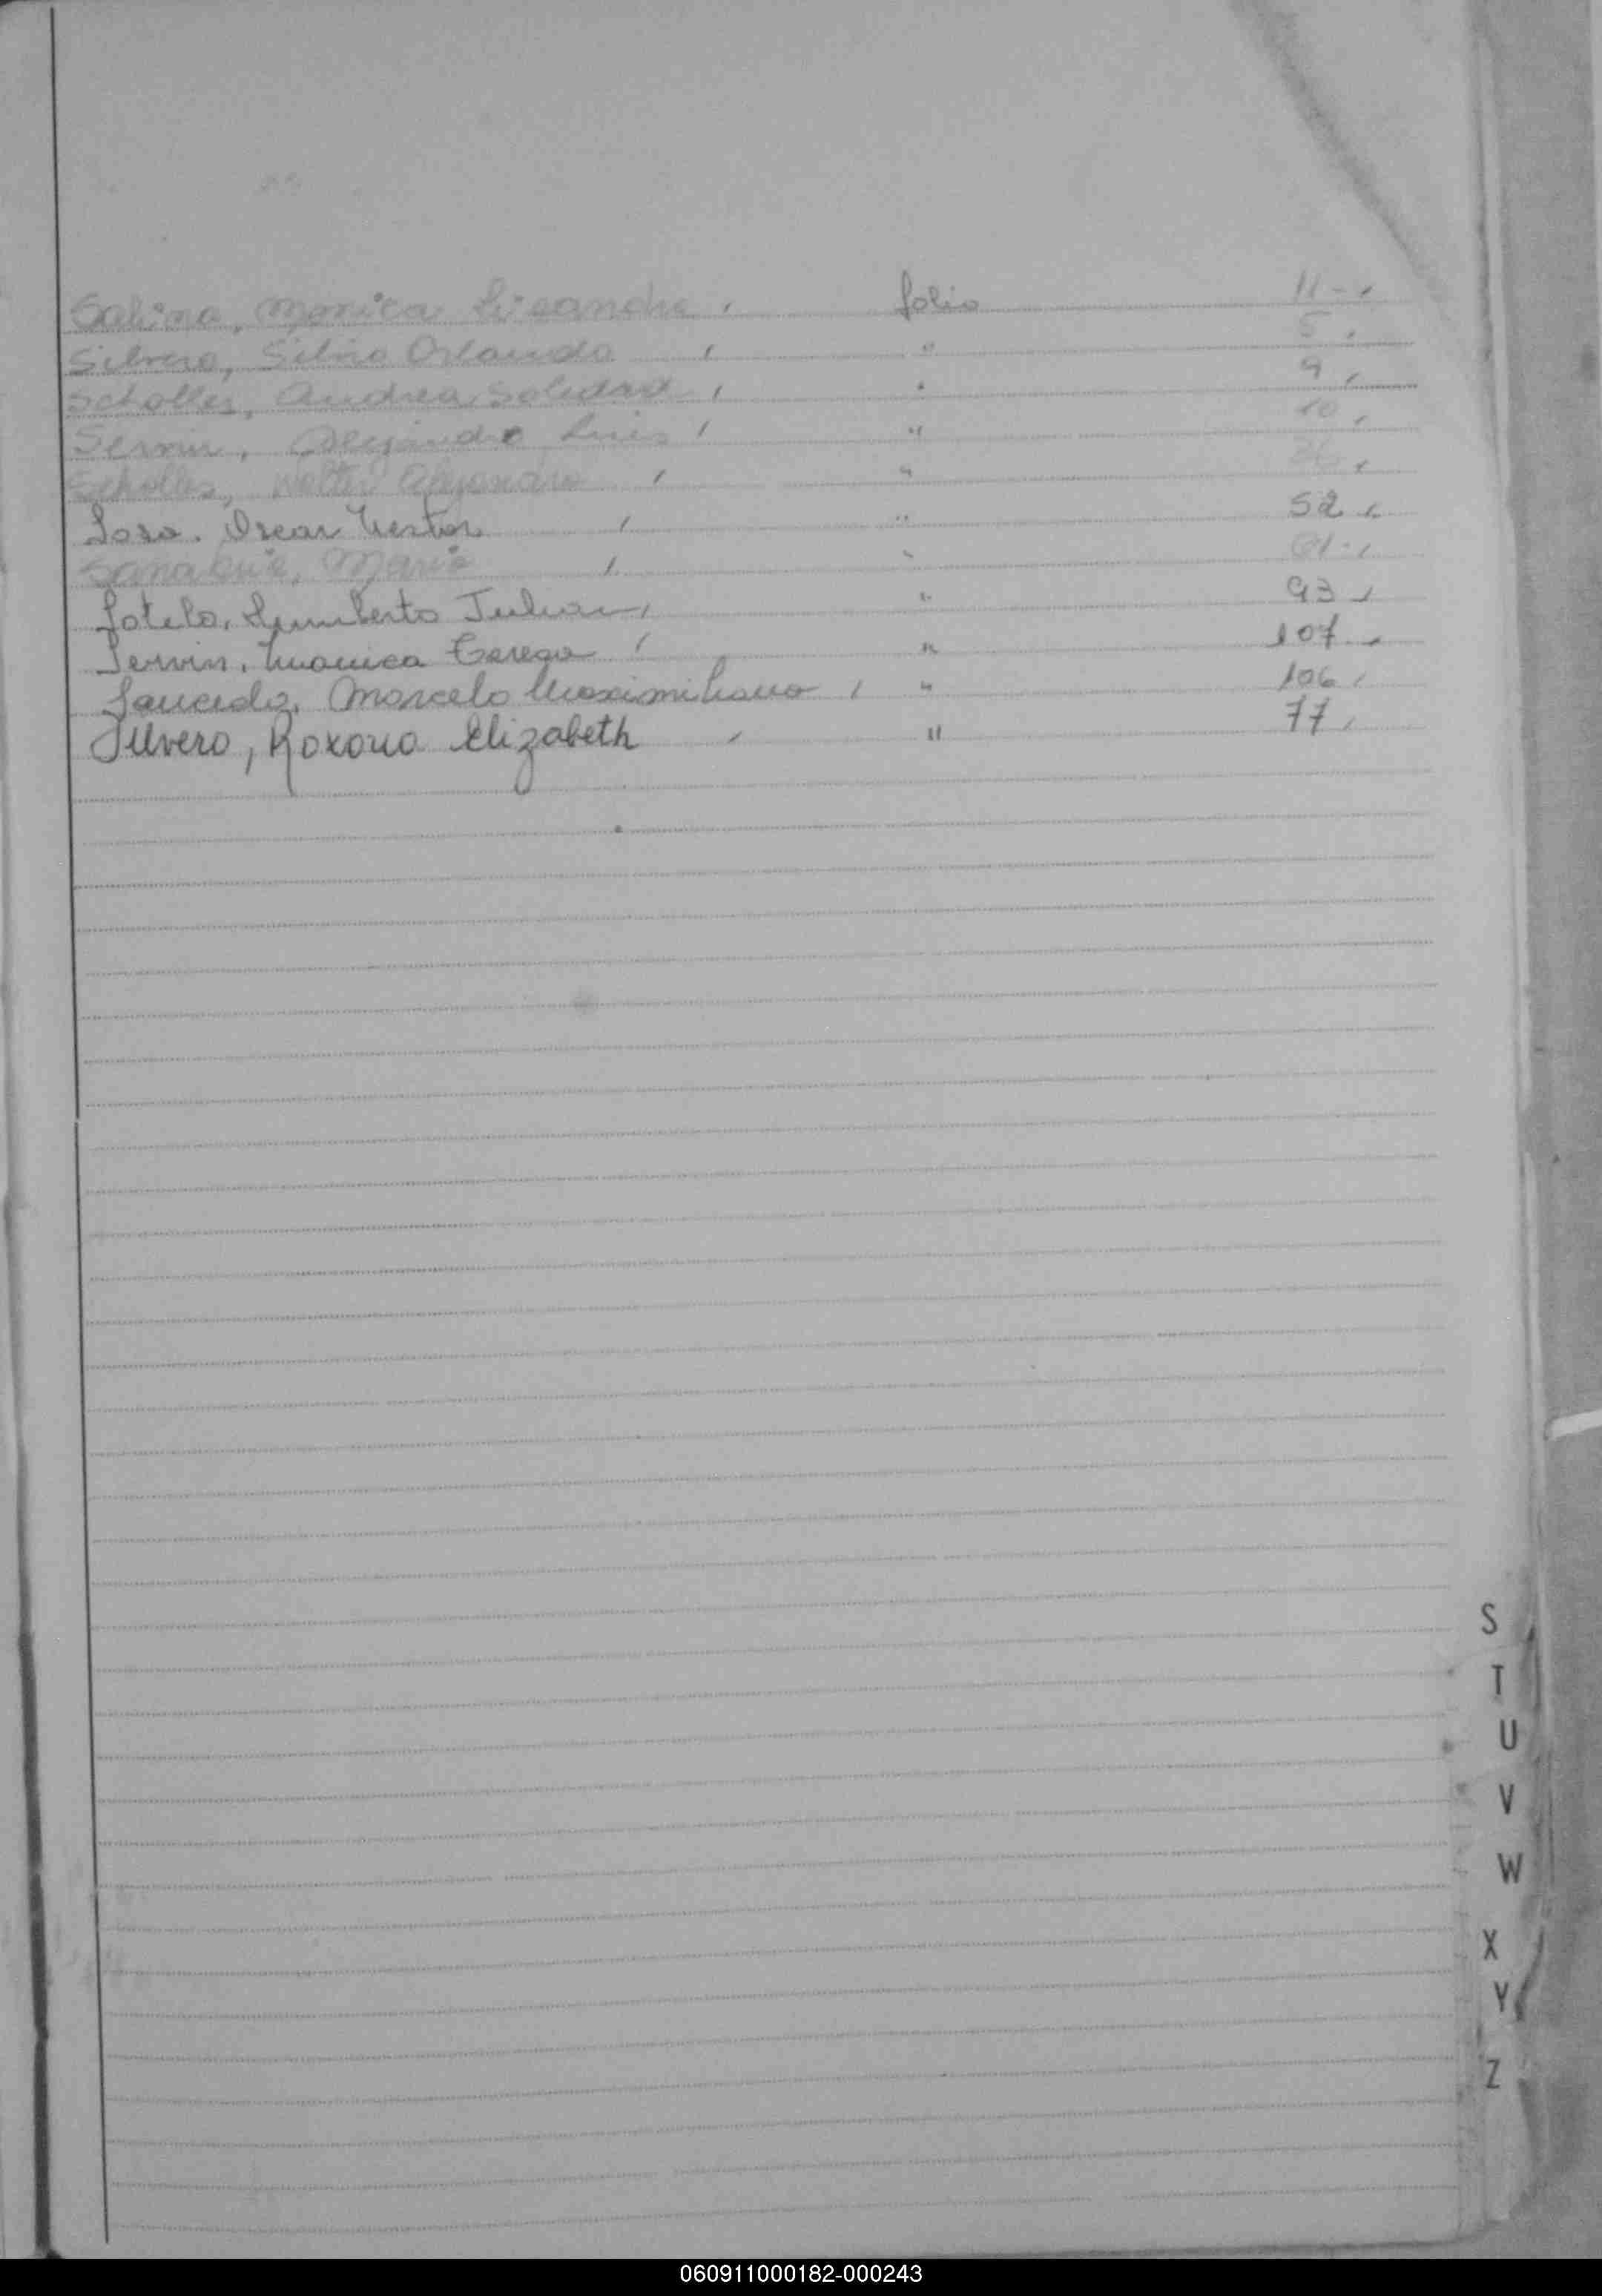 Salina, Monica Lisandra, folio 11-,
Silvero, Silvio Orlando , " 5,
Scholles, Andrea Soledad, " 9,
Servin, Alejandro Luis, " 10,
Scholles, Walter Alejandro , " 36,
Sosa, Oscar Nestor , " 52,
Sanabria, Mario , " 61-,
Sotelo, Humberto Julian, " 93,
Servin, Monica Teresa , " 107,
Saucedo, Marcelo Maximiliano, " 106,
Silvero, Roxana Elizabeth , " 77,
S
T
U
V
W
X
Y
Z
060911000182-000243